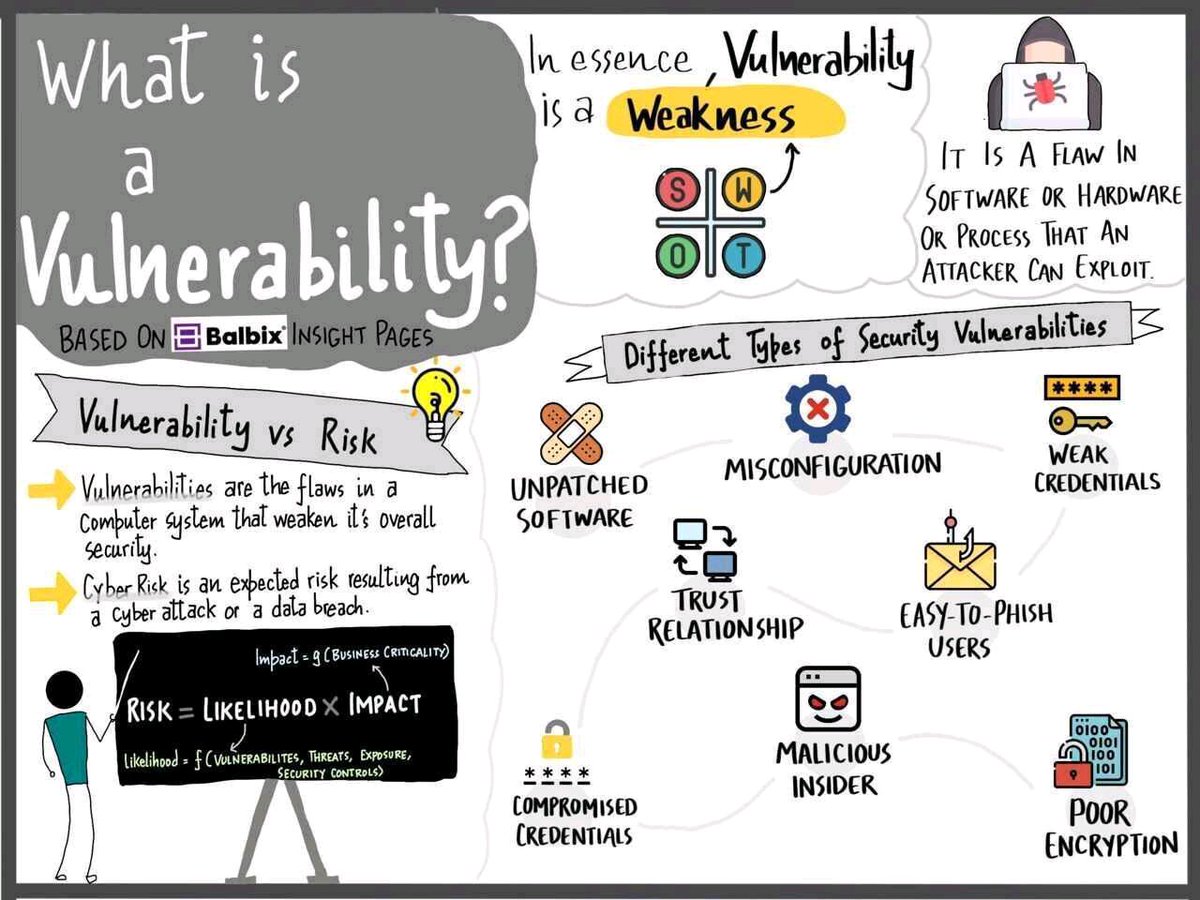 What is
a
Vulnerability?
BASED ON Balbix® INSIGHT PAGES
In essence, Vulnerability
is a Weakness
S W
O T
IT IS A FLAW IN
SOFTWARE OR HARDWARE
OR PROCESS THAT AN
ATTACKER CAN EXPLOIT.
Vulnerability vs Risk
a
Vulnerabilities are the flaws in a
computer system that weaken it's overall
security.
Cyber Risk is an expected risk resulting from
a cyber attack or a data breach.
Impact = g (BUSINESS CRITICALITY)
RISK = LIKELIHOOD X IMPACT
Likelihood = f (VULNERABILITES, THREATS, EXPOSURE,
SECURITY CONTROLS)
Different Types of Security Vulnerabilities
UNPATCHED
SOFTWARE
MISCONFIGURATION
****
WEAK
CREDENTIALS
TRUST
RELATIONSHIP
EASY-TO-PHISH
USERS
****
COMPROMISED
CREDENTIALS
MALICIOUS
INSIDER
0100
0101
100
101
POOR
ENCRYPTION